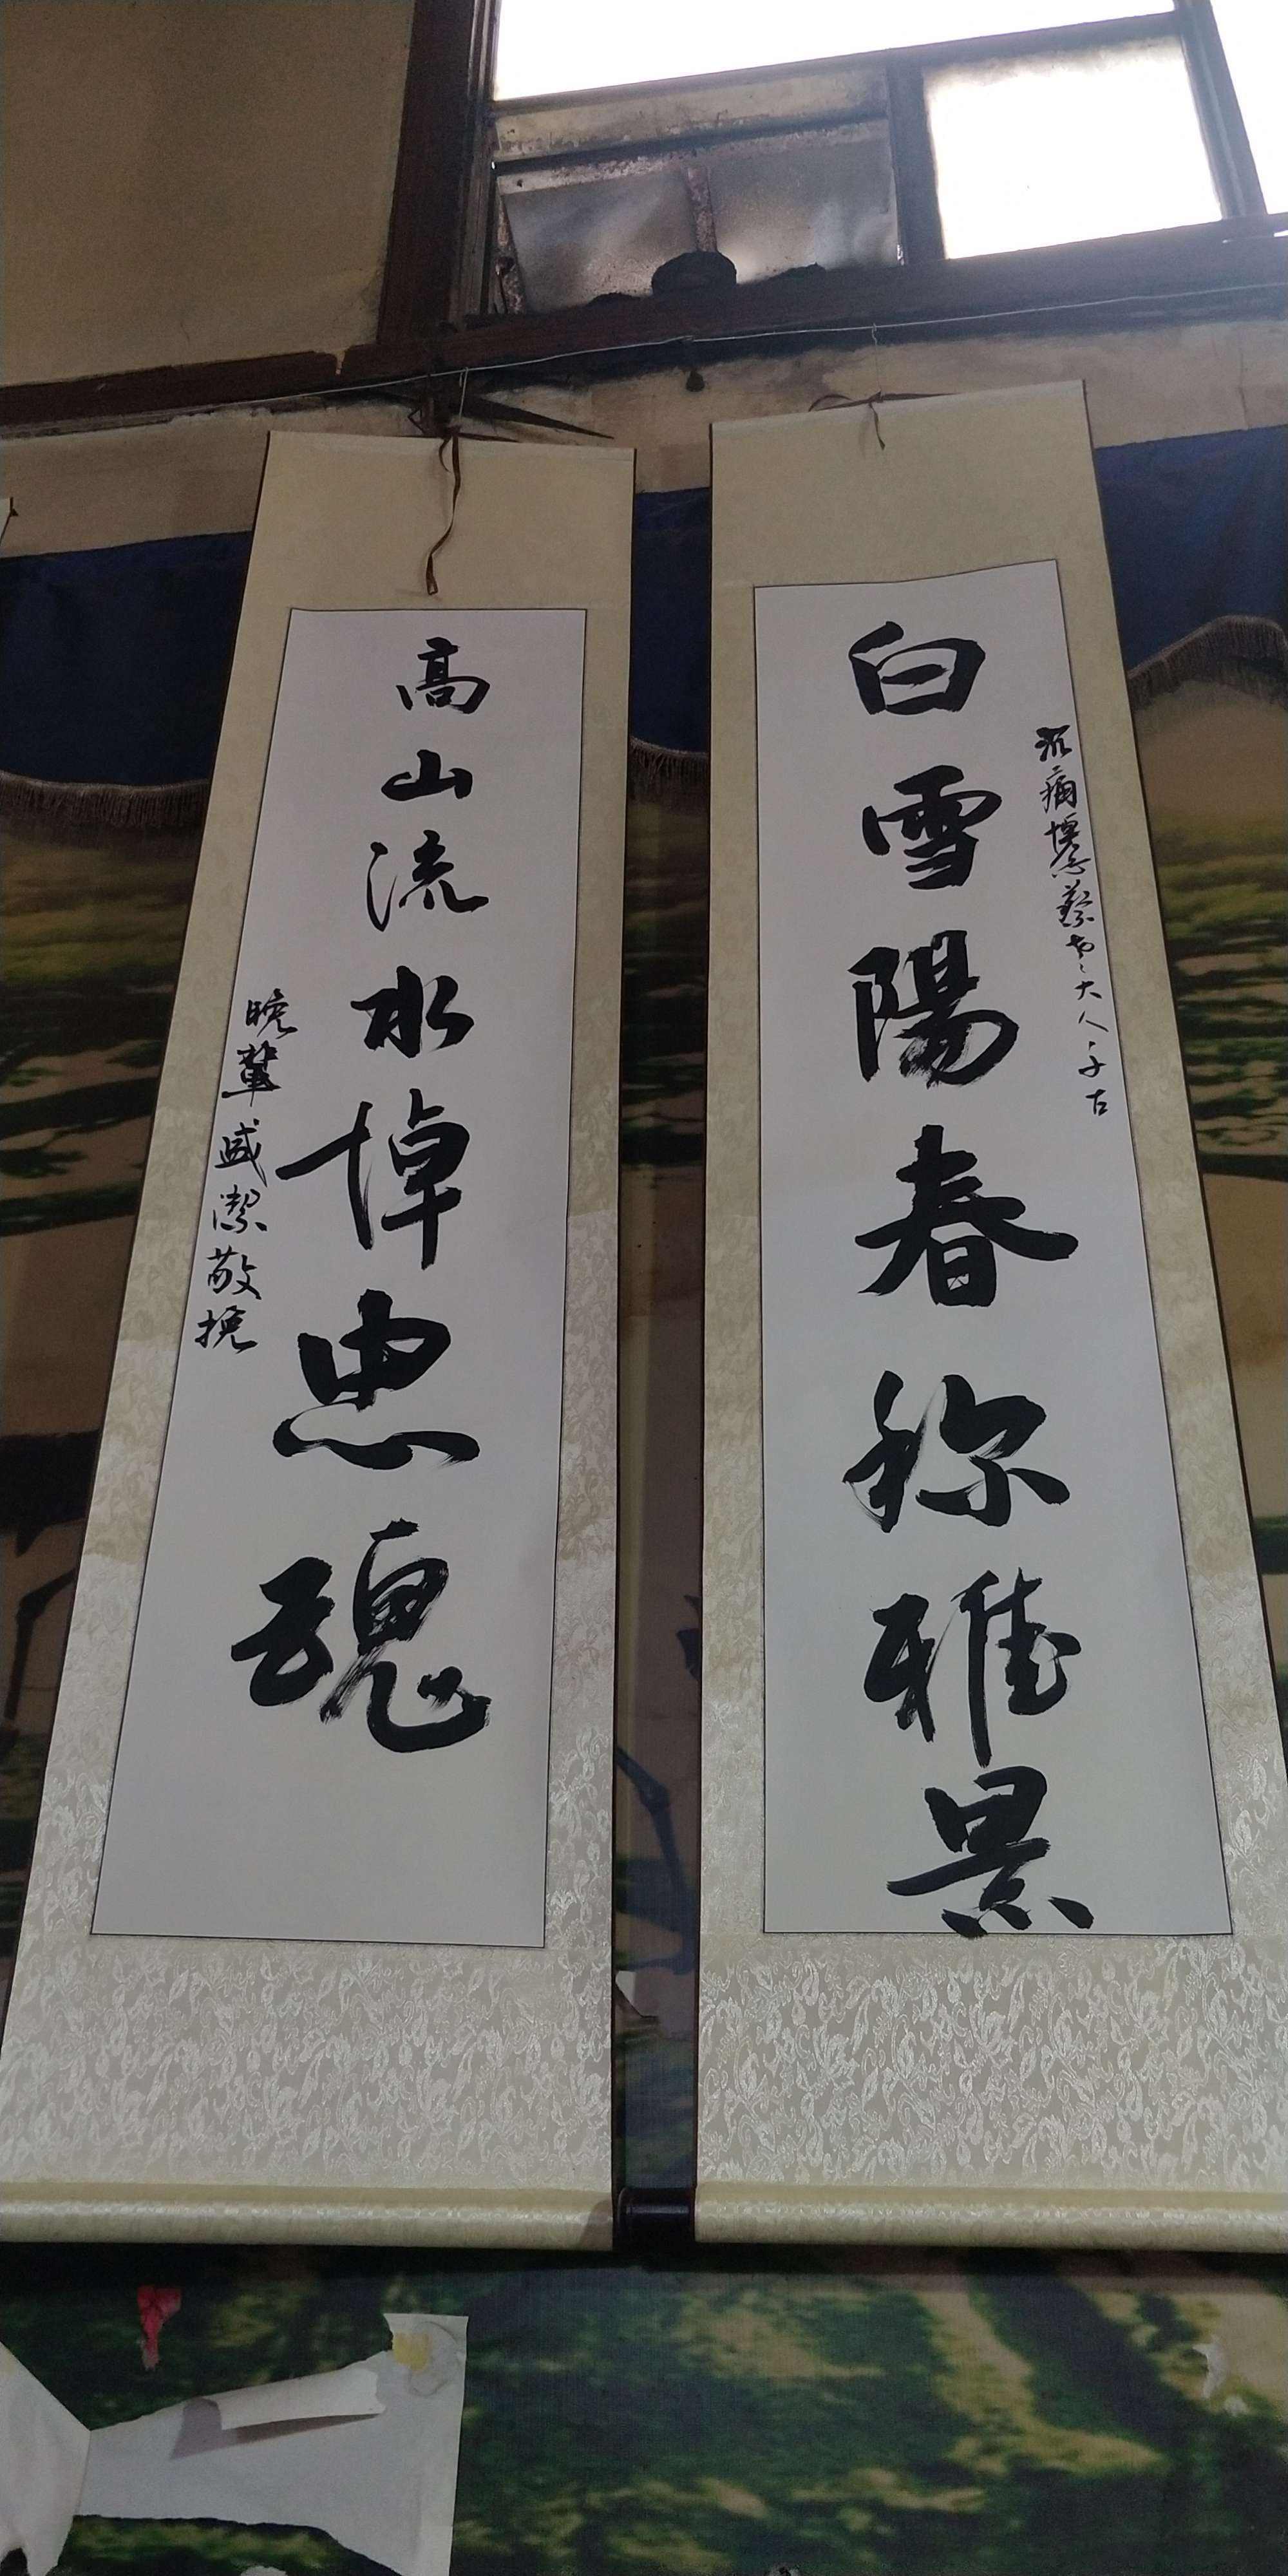 沉痛懷念蔡老大人千古
白雪陽春称雅景
高山流水悼忠魂
晚輩盛潔敬挽